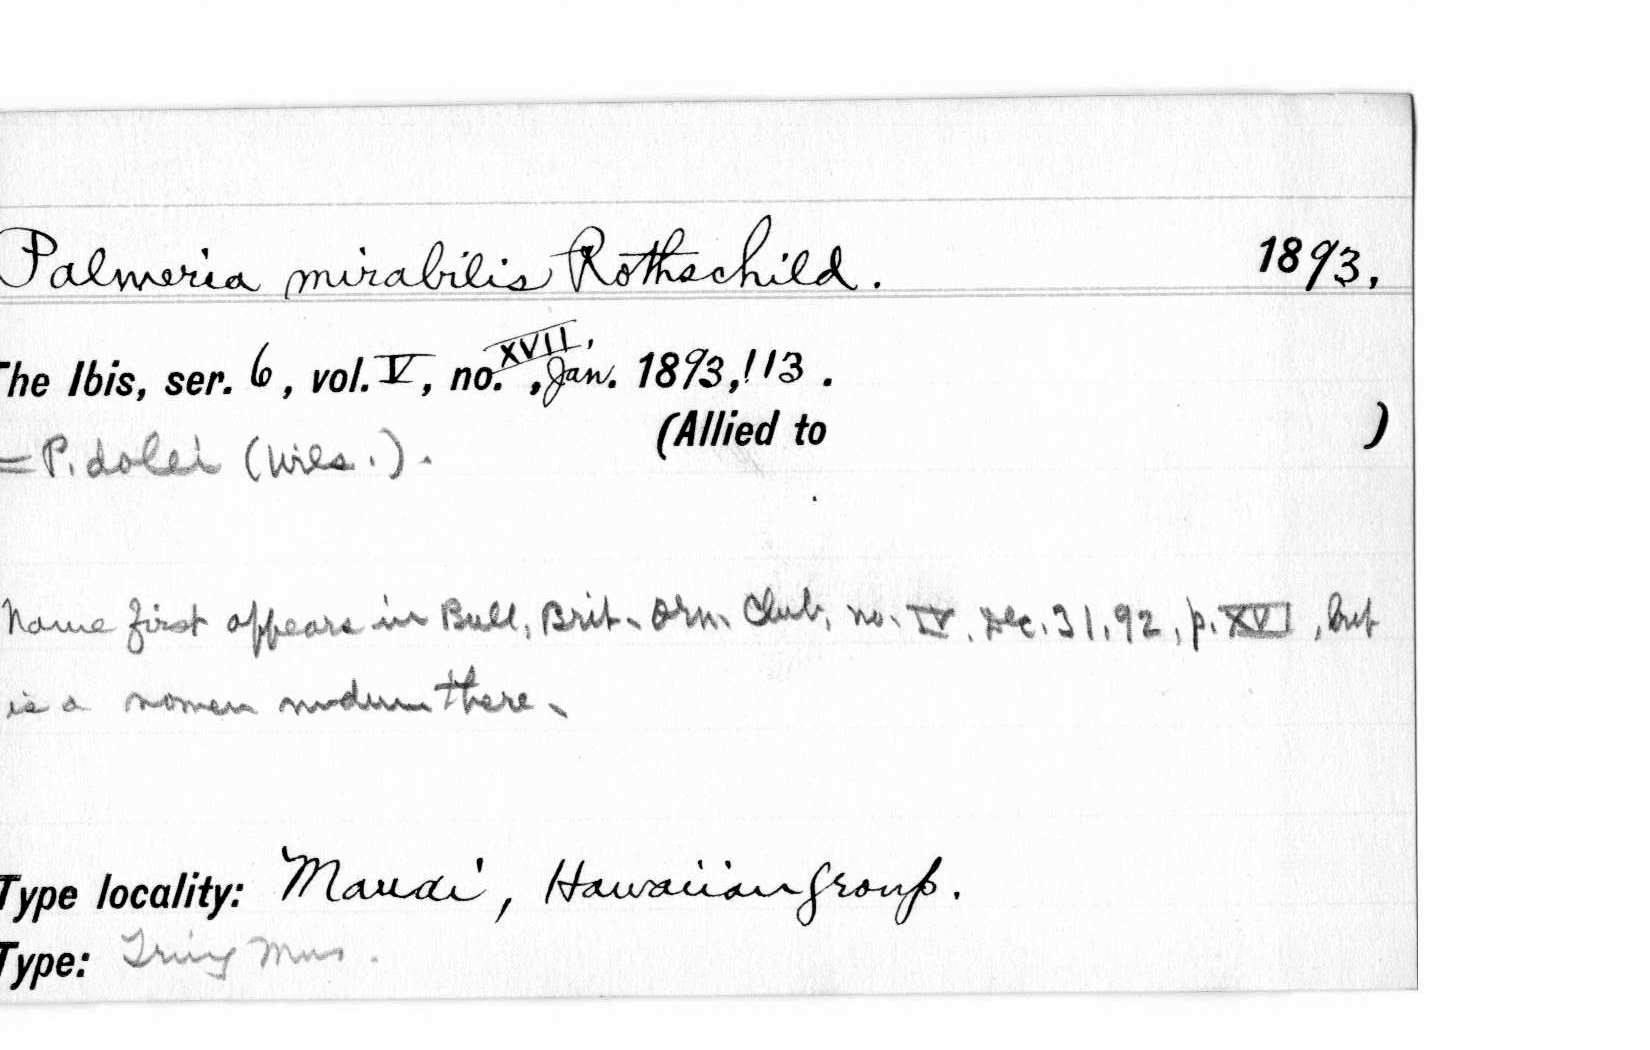 Palmeria mirabilis Rothschild. 1893,
The Ibis, ser. 6, vol. V, no. XVII, Jan. 1893, 113.
(Allied to )
= P. dolei (Wils.).
Name first appears in Bull. Brit. Orn. Club, no. IV, Dec. 31, 92, p. XVI, but
is a nomen nudum there.
Type locality: Mauai, Hawaiian Group.
Type: Tring Mus.